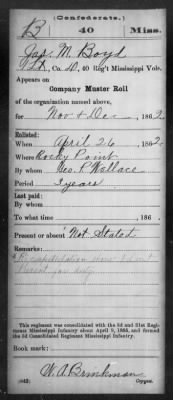 (Confederate.)
B 40 Miss.
Jas. M. Boyd
Lt., Co. D, 40 Reg't Mississippi Vols.
Appears on
Company Muster Roll
of the organization named above,
for Nov & Dec , 1862
Enlisted:
When April 26 , 1862
Where Rocky Point
By whom Geo. P. Wallace
Period 3 years
Last paid:
By whom
To what time , 186 .
Present or absent Not Stated
Remarks:
Recapitulation shows 1 Lieut
Present for duty
This regiment was consolidated with the 3d and 31st Regiments Mississippi Infantry about April 9, 1865, and formed
the 3d Consolidated Regiment Mississippi Infantry.
Book mark:
W. A. Brinkman
(642) Copyist.